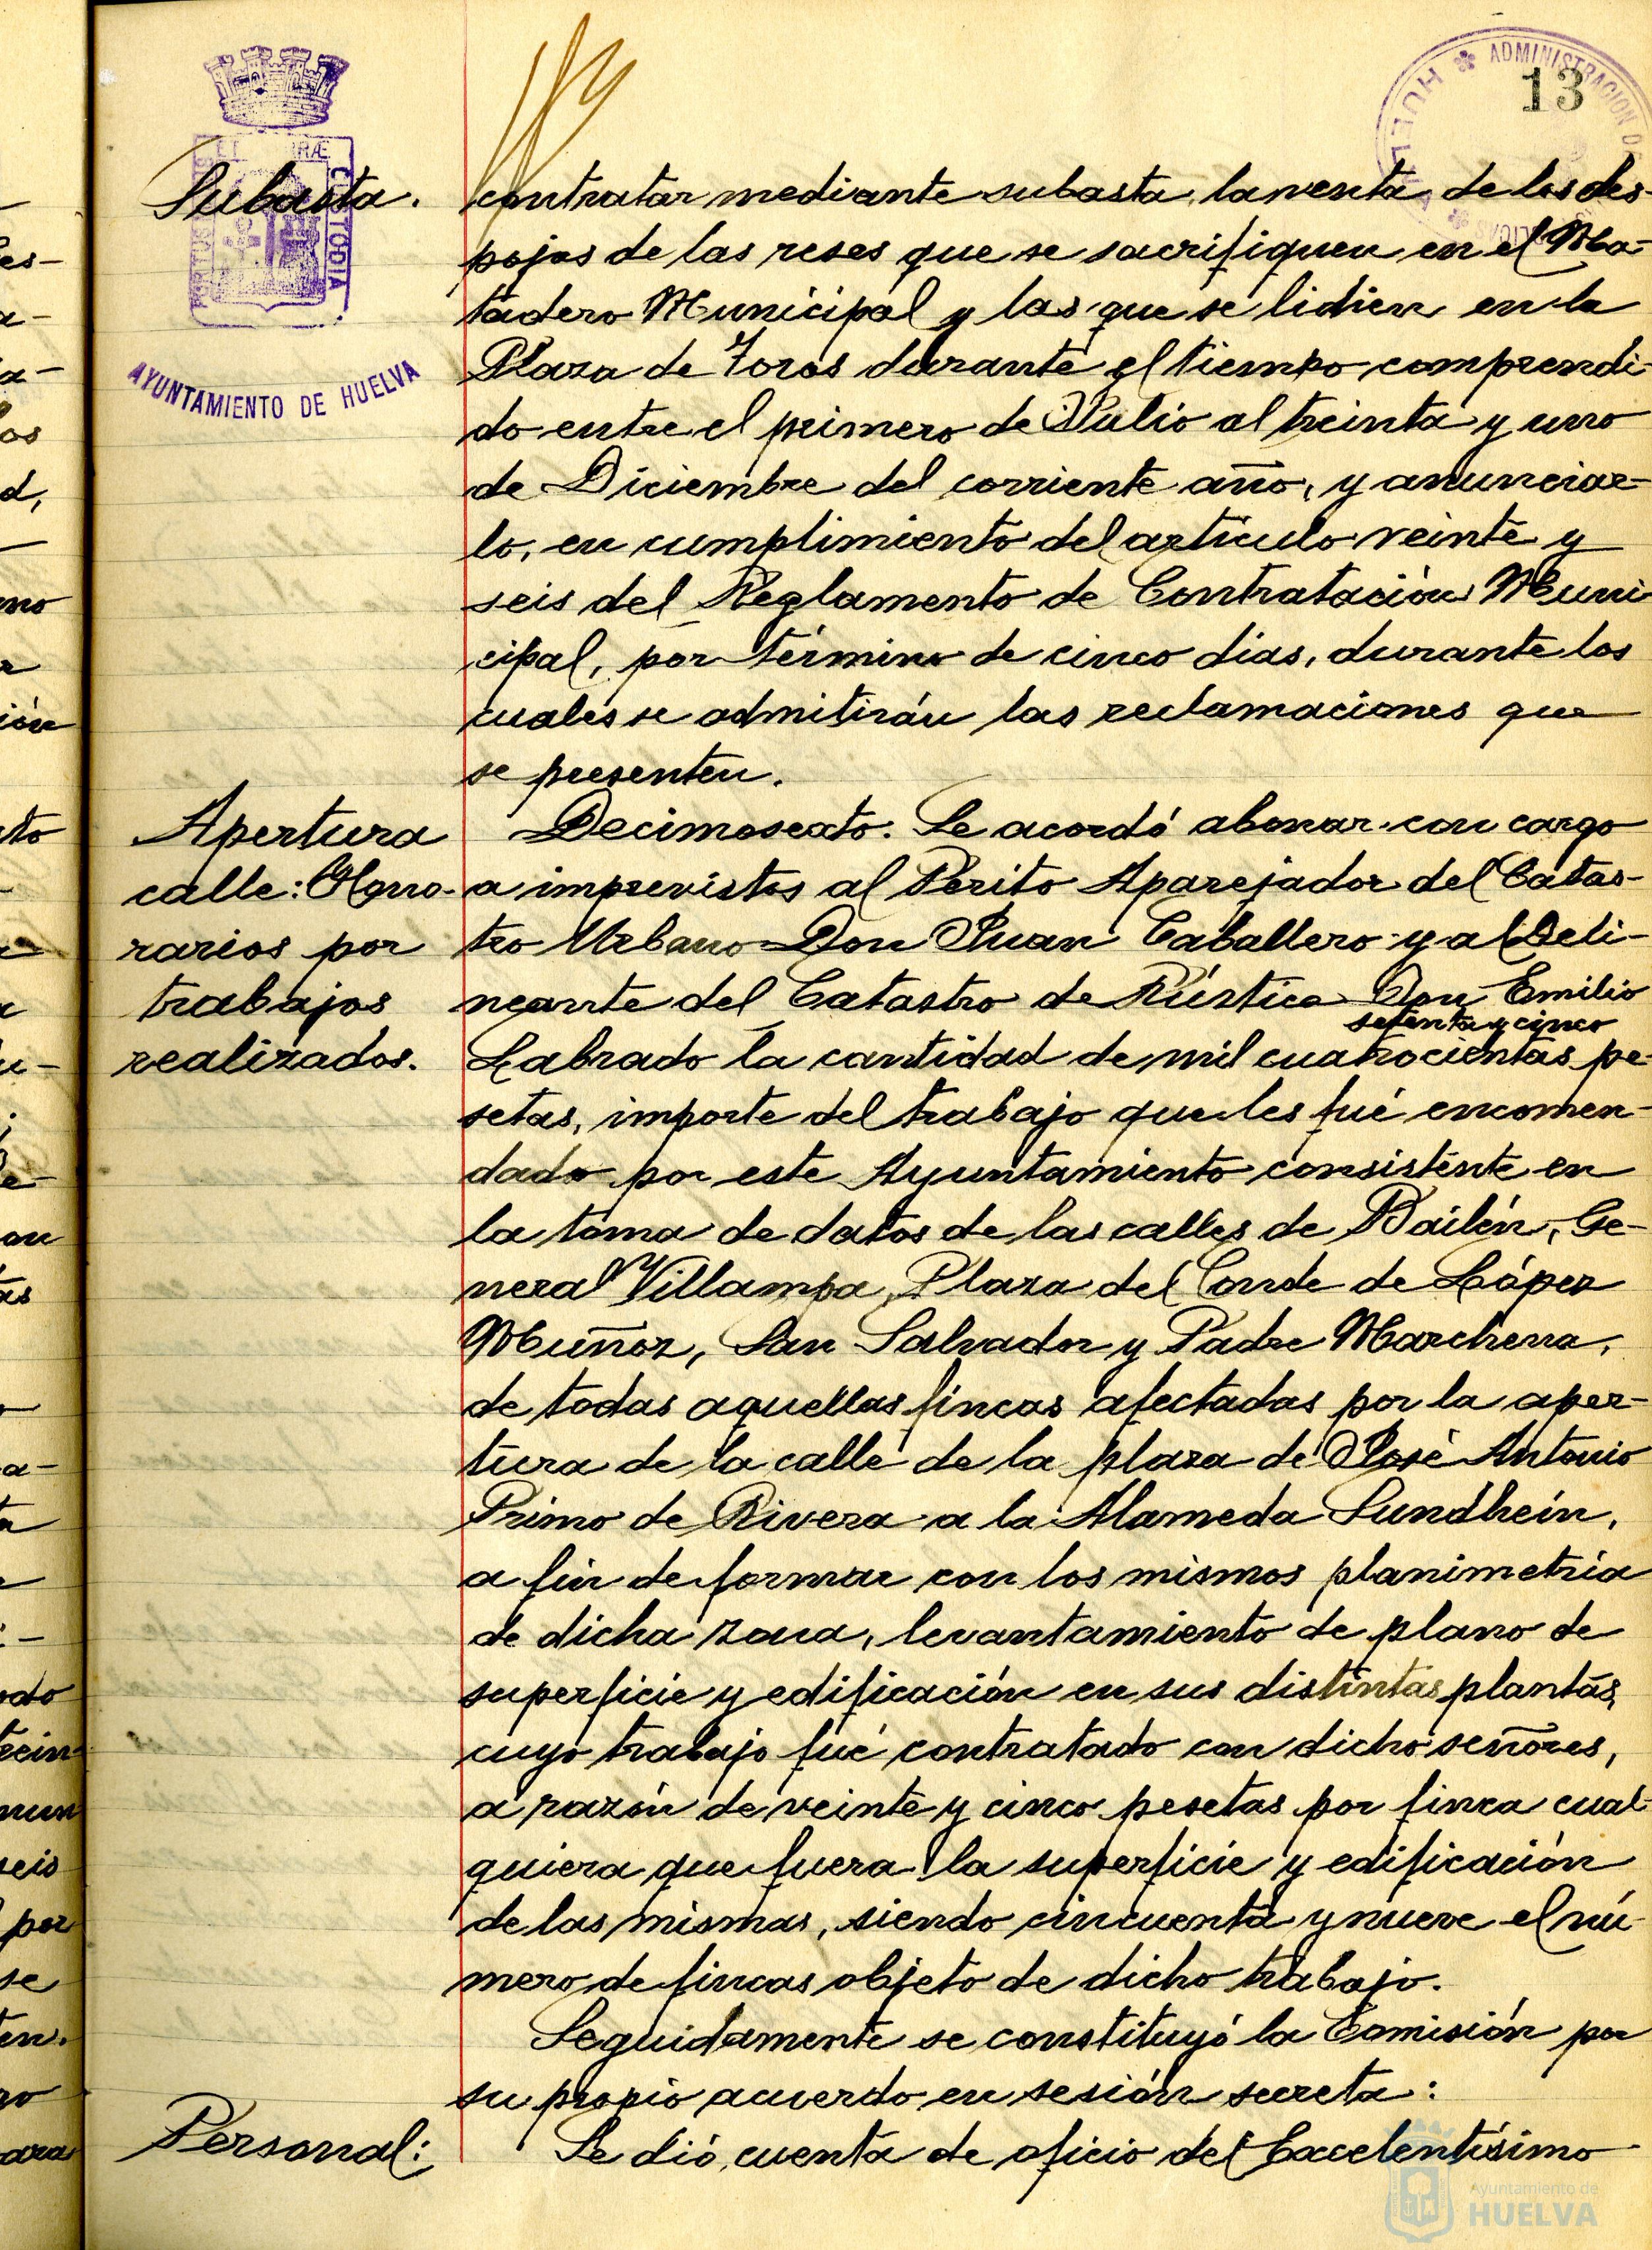 13
ADMINISTRACION D
HUELVA
AYUNTAMIENTO DE HUELVA
PORTUS
CUSTODIA
Subasta.
contratar mediante subasta, la venta de los des-
pojos de las reses que se sacrifiquen en el Ma-
tadero Municipal y las que se lidien en la
Plaza de Toros durante el tiempo comprendi-
do entre el primero de Julio al treinta y uno
de Diciembre del corriente año, y anunciar-
lo, en cumplimiento del artículo veinte y
seis del Reglamento de Contratación Muni
cipal, por término de cinco dias, durante los
cuales se admitirán las reclamaciones que
se presenten.
Apertura
calle: Hono-
rarios por
trabajos
realizados.
Decimosexto. Se acordó abonar con cargo
a imprevistos al Perito Aparejador del Catas-
tro Urbano Don Juan Caballero y al Deli-
neante del Catastro de Rústica Don Emilio
setenta y cinco
Labrado la cantidad de mil cuatrocientas pe-
setas, importe del trabajo que les fué encomen-
dado por este Ayuntamiento consistente en
la toma de datos de las calles de Bailén, Ge-
neral Villampa, Plaza del Conde de López
Muñoz, San Salvador y Padre Marchena,
de todas aquellas fincas afectadas por la aper-
tura de la calle de la plaza de José Antonio
Primo de Rivera a la Alameda Sundhein,
a fin de formar con los mismos planimetria
de dicha zona, levantamiento de plano de
superficie y edificación en sus distintas plantas,
cuyo trabajo fué contratado con dicho señores,
a razón de veinte y cinco pesetas por finca cual-
quiera que fuera la superficie y edificación
de las mismas, siendo cincuenta y nueve el nú-
mero de fincas objeto de dicho trabajo.
Seguidamente se constituyó la Comisión por
su propio acuerdo en sesión secreta:
Personal:
Se dió cuenta de oficio del Excelentísimo
Ayuntamiento de
HUELVA